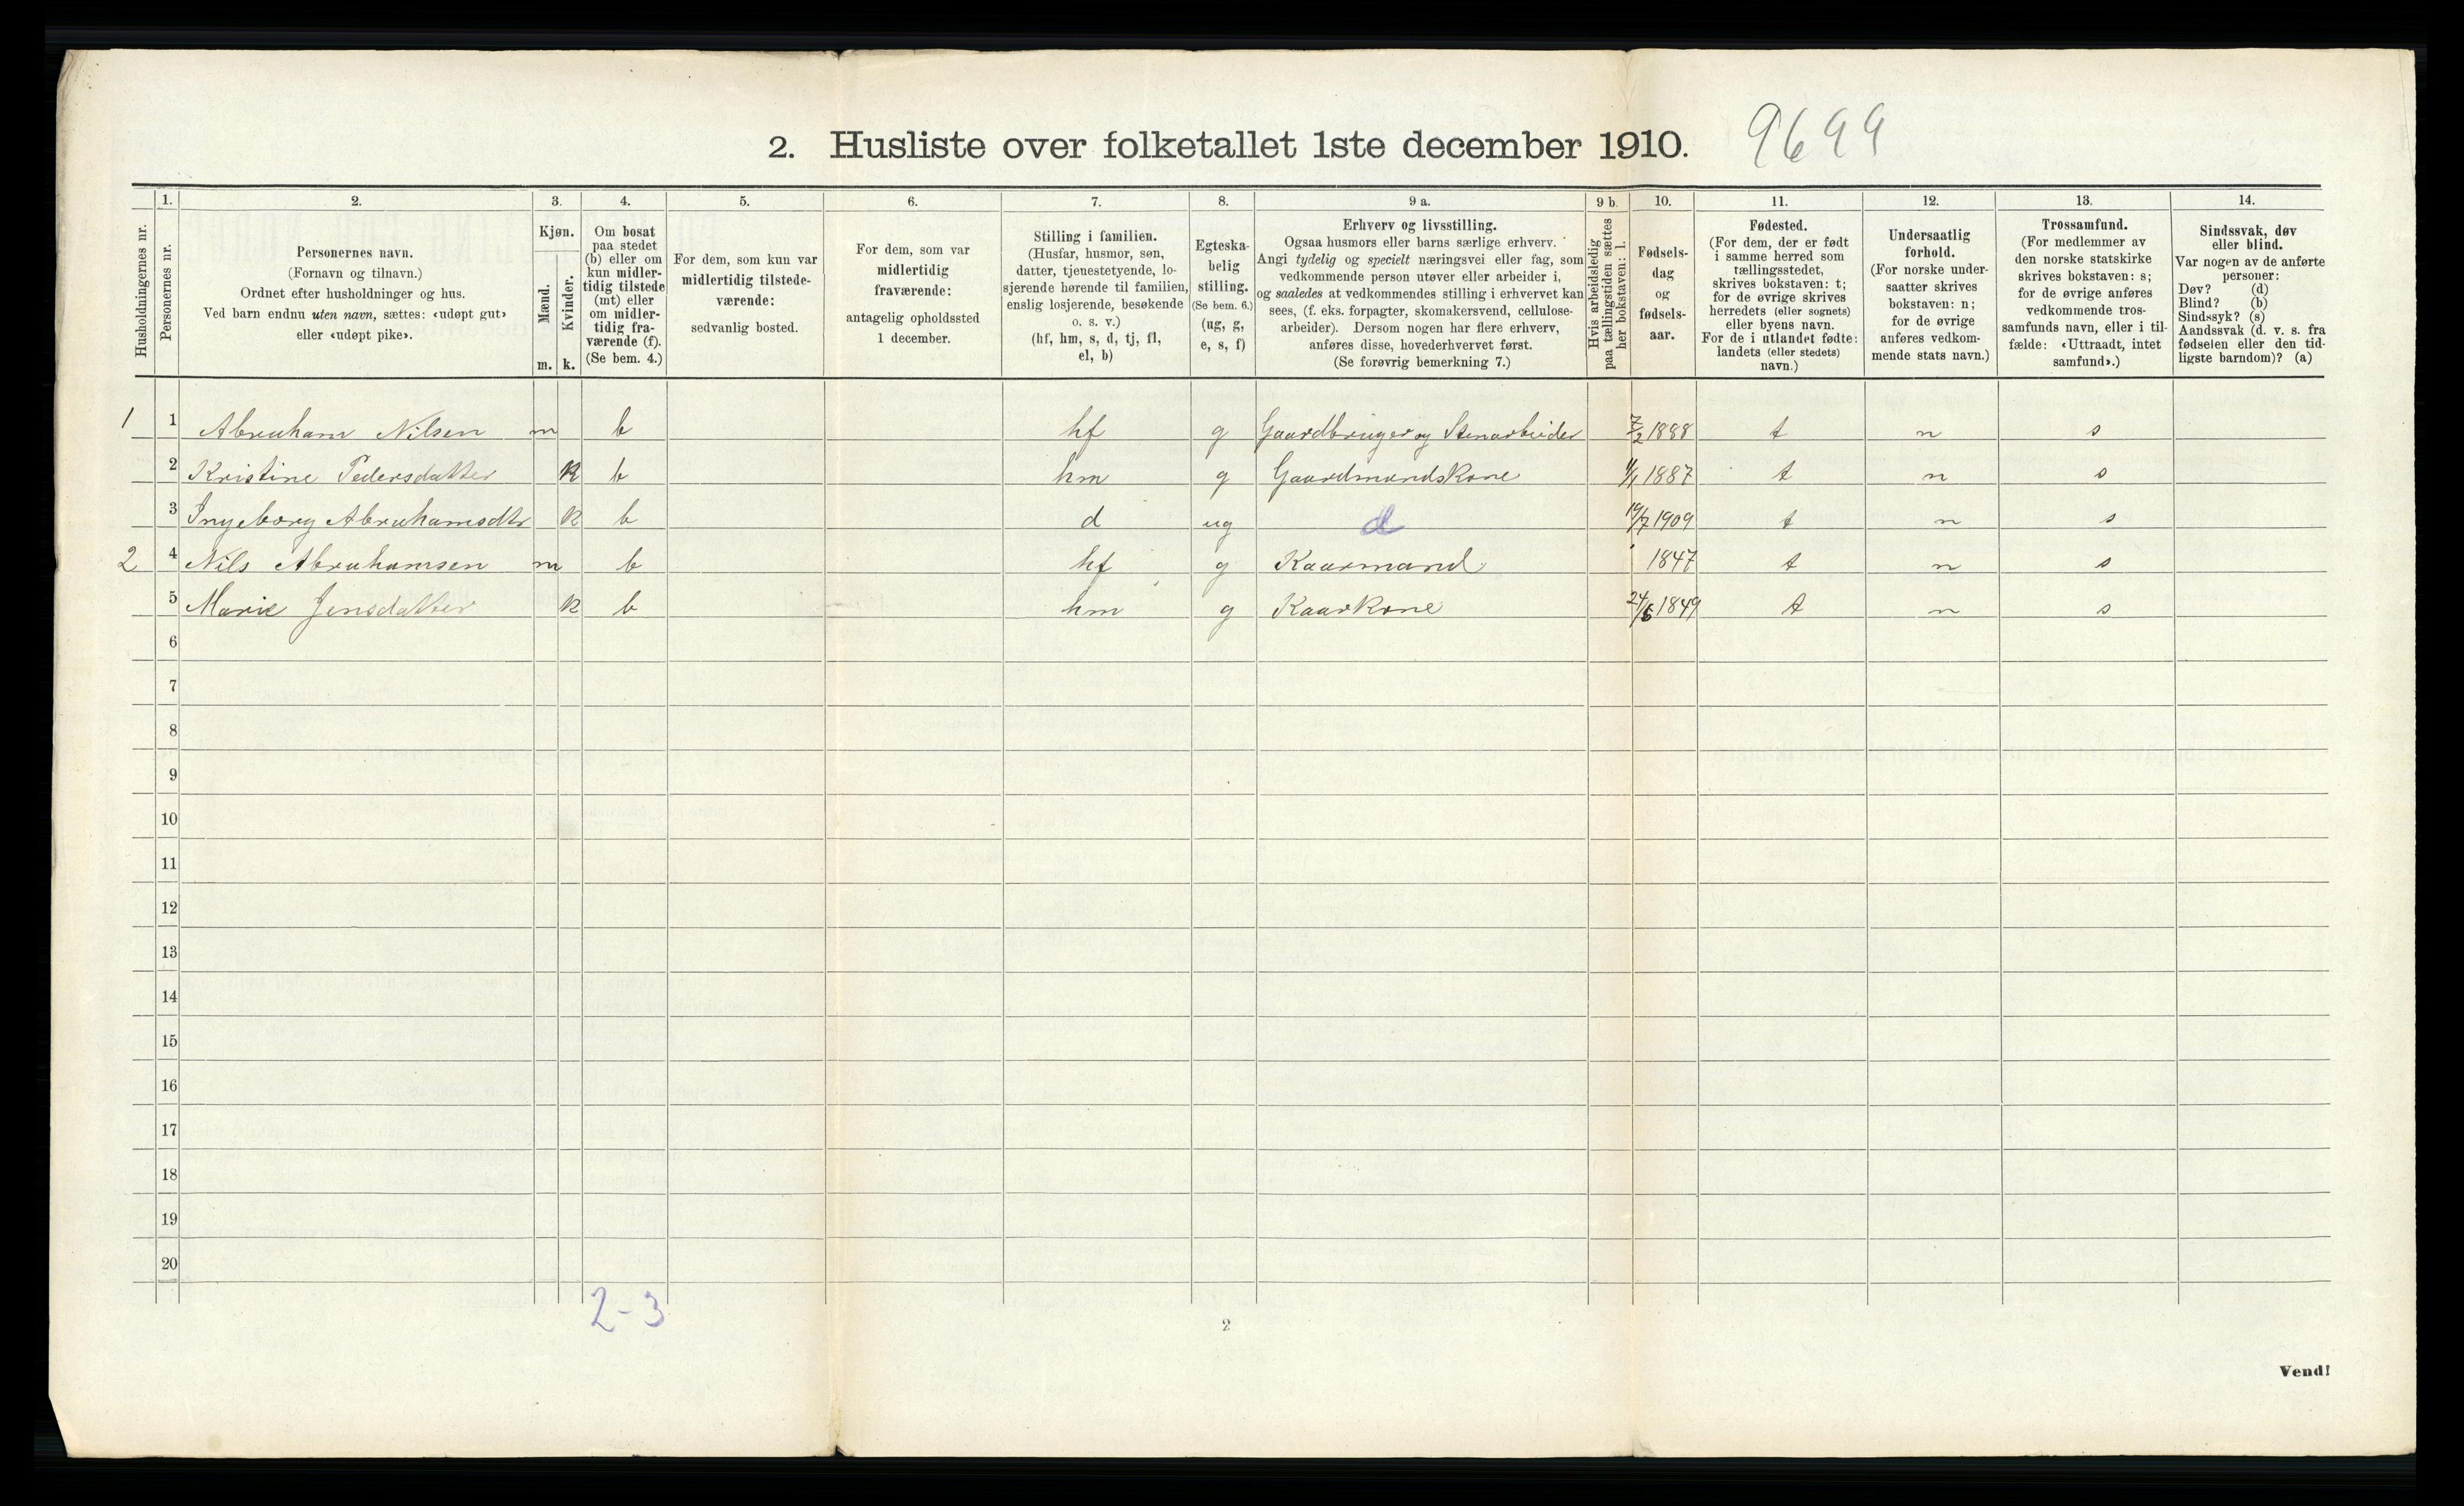 2. Husliste over folketallet 1ste december 1910. 9699
Husholdningernes nr.
1. Personernes nr.
2. Personernes navn.
(Fornavn og tilnavn.)
Ordnet efter husholdninger og hus.
Ved barn endnu uten navn, sættes: «udøpt gut»
eller «udøpt pike».
3. Kjøn.
Mænd. m.
Kvinder. k.
4. Om bosat
paa stedet
(b) eller om
kun midler-
tidig tilstede
(mt) eller
om midler-
tidig fra-
værende (f).
(Se bem. 4.)
5. For dem, som kun var
midlertidig tilstede-
værende:
sedvanlig bosted.
6. For dem, som var
midlertidig
fraværende:
antagelig opholdssted
1 december.
7. Stilling i familien.
(Husfar, husmor, søn,
datter, tjenestetyende, lo-
sjerende hørende til familien,
enslig losjerende, besøkende
o. s. v.)
(hf, hm, s, d, tj, fl,
el, b)
8. Egteska-
belig
stilling.
(Se bem. 6.)
(ug, g,
e, s, f)
9 a. Erhverv og livsstilling.
Ogsaa husmors eller barns særlige erhverv.
Angi tydelig og specielt næringsvei eller fag, som
vedkommende person utøver eller arbeider i,
og saaledes at vedkommendes stilling i erhvervet kan
sees, (f. eks. forpagter, skomakersvend, cellulose-
arbeider). Dersom nogen har flere erhverv,
anføres disse, hovederhvervet først.
(Se forøvrig bemerkning 7.)
9 b. Hvis arbeidsledig
paa tællingstiden sættes
her bokstaven: l.
10. Fødsels-
dag
og
fødsels-
aar.
11. Fødested.
(For dem, der er født
i samme herred som
tællingsstedet,
skrives bokstaven: t;
for de øvrige skrives
herredets (eller sognets)
eller byens navn.
For de i utlandet fødte:
landets (eller stedets)
navn.)
12. Undersaatlig
forhold.
(For norske under-
saatter skrives
bokstaven: n;
for de øvrige
anføres vedkom-
mende stats navn.)
13. Trossamfund.
(For medlemmer av
den norske statskirke
skrives bokstaven: s;
for de øvrige anføres
vedkommende tros-
samfunds navn, eller i til-
fælde: «Uttraadt, intet
samfund».)
14. Sindssvak, døv
eller blind.
Var nogen av de anførte
personer:
Døv? (d)
Blind? (b)
Sindssyk? (s)
Aandssvak (d. v. s. fra
fødselen eller den tid-
ligste barndom)? (a)
1 1 Abraham Nilsen m b hf g Gaardbruger og Stenarbeider 7/2 1888 t n s
2 Kristine Pedersdatter k b hm g Gaardmandskone 1/1 1887 t n s
3 Ingeborg Abrahamsdtr k b d ug d 19/7 1909 t n s
2 4 Nils Abrahamsen m b hf g Kaarmand 1847 t n s
5 Marie Jensdatter k b hm g Kaarkone 24/6 1849 t n s
6
7
8
9
10
11
12
13
14
15
16
17
18
19
20
2-3
2
Vend!